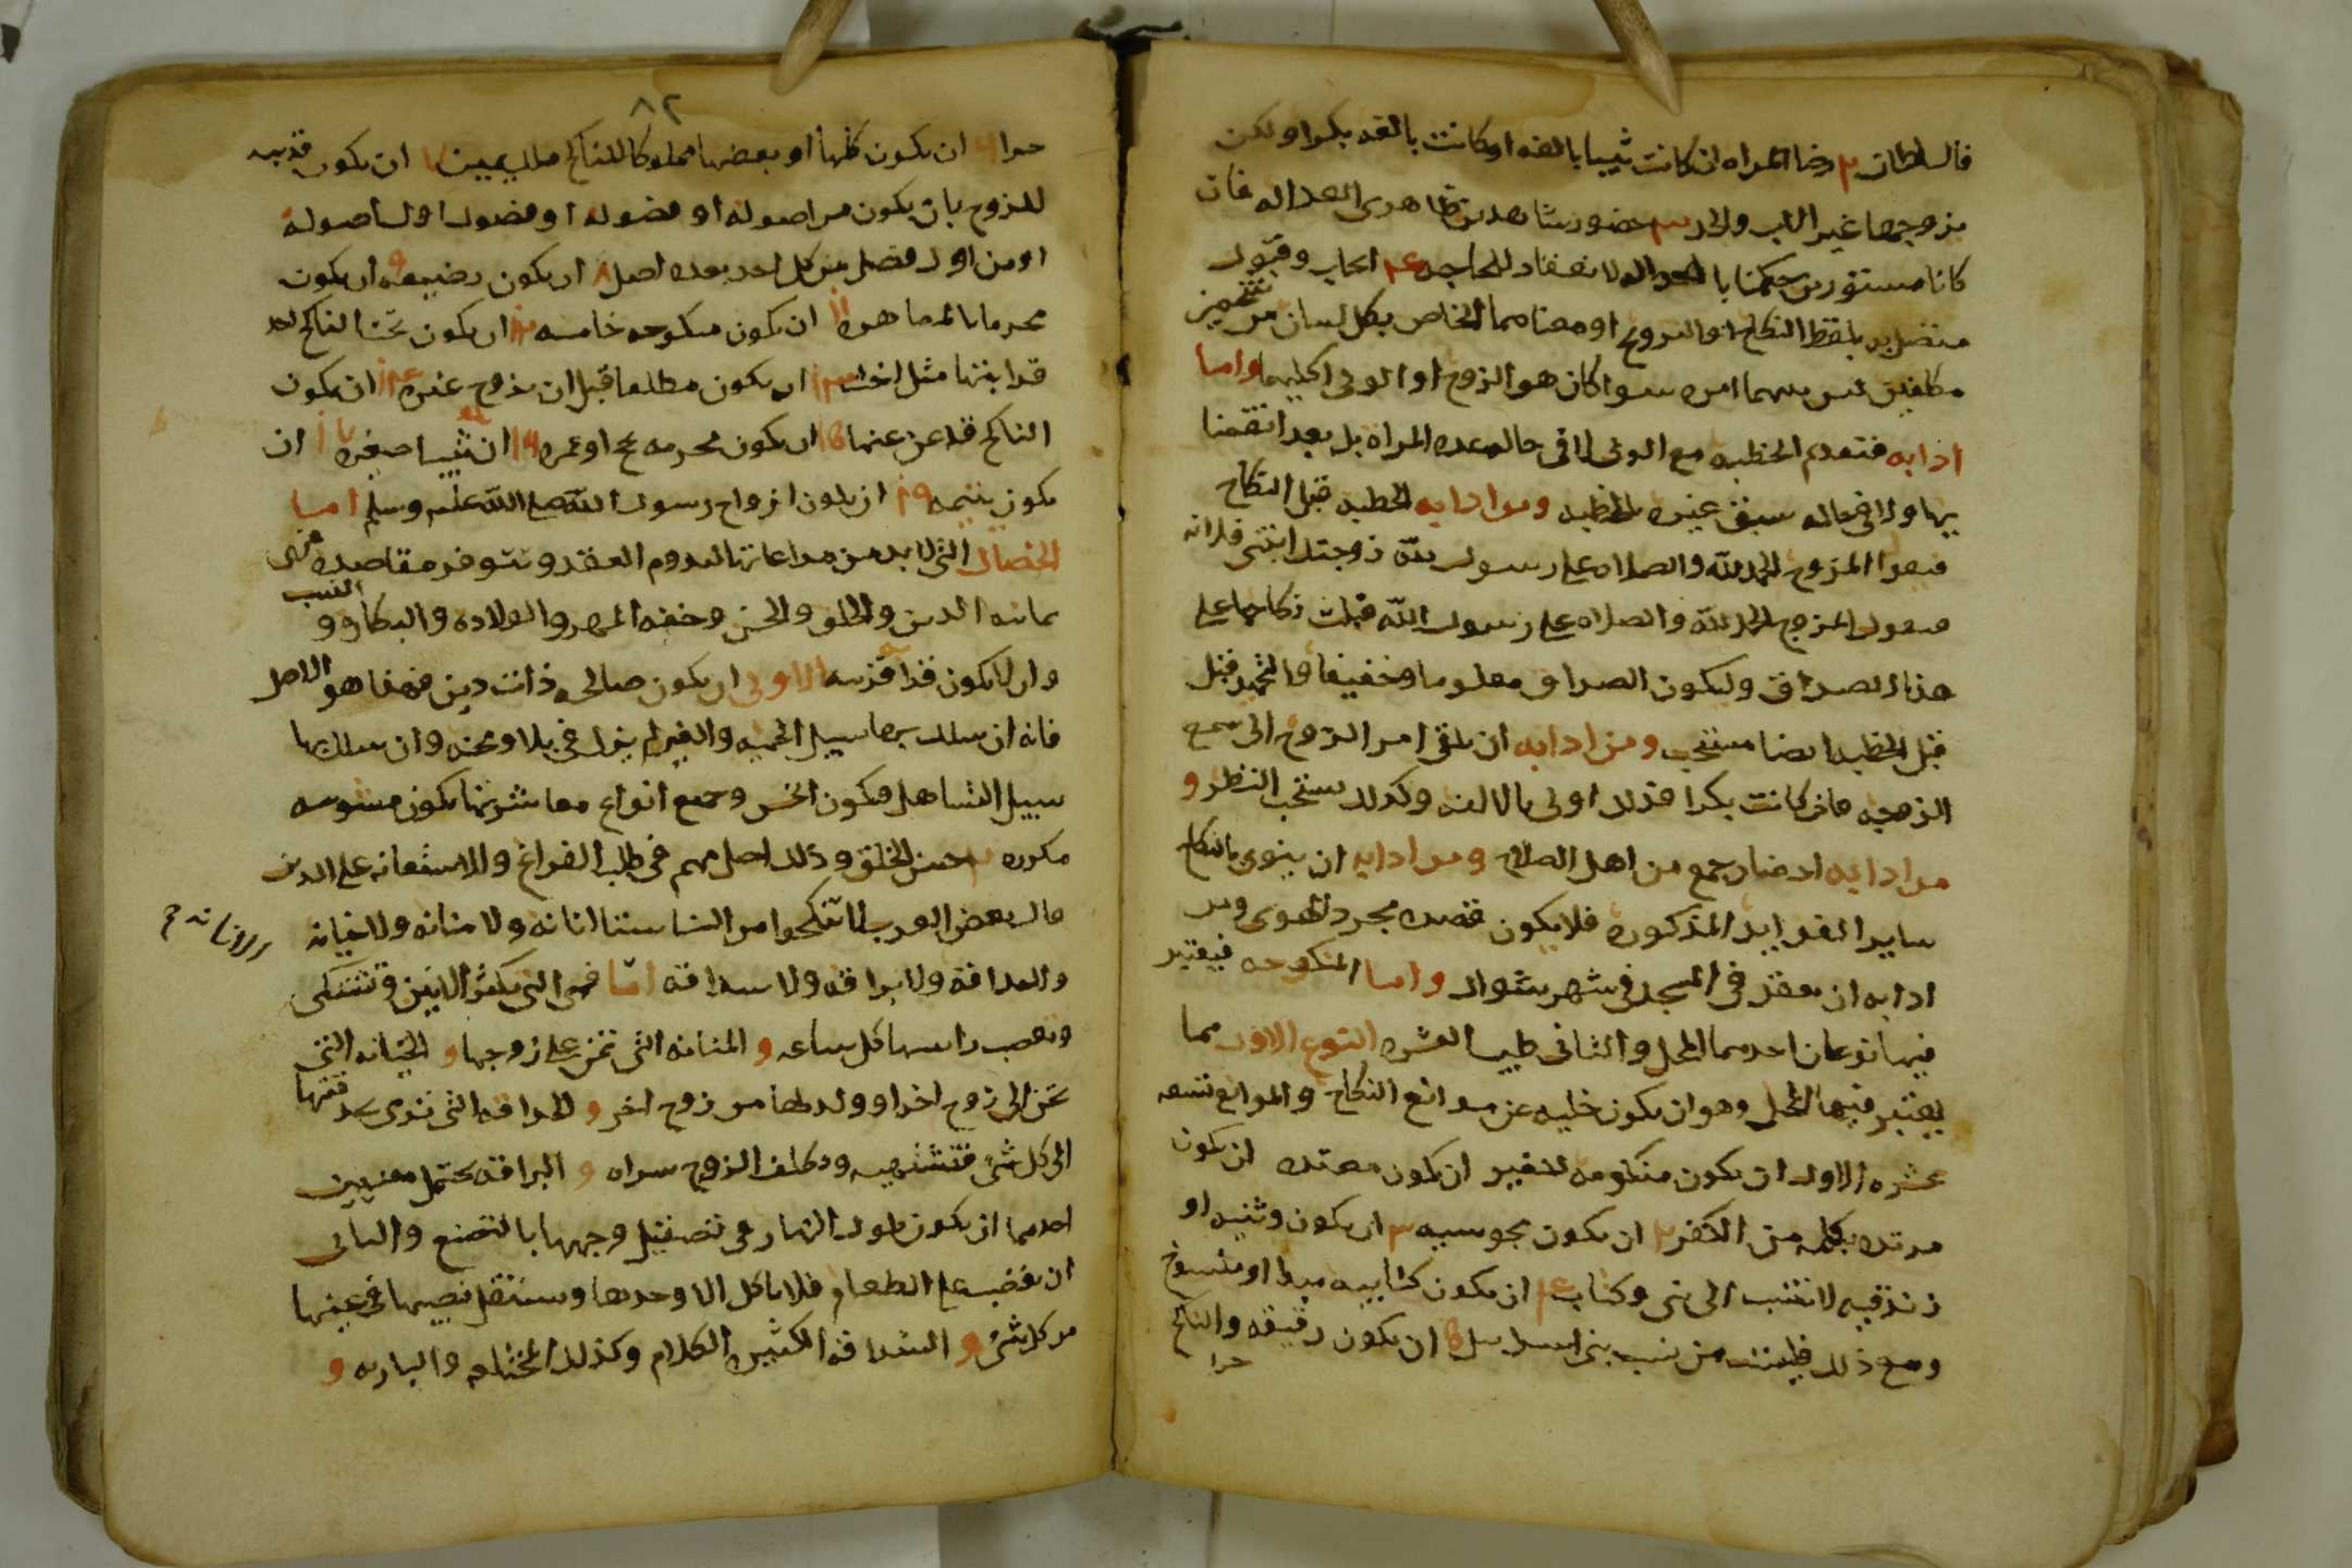 فالسلطان ٢ رضا المراه ان كانت ثيبا بالغه او كانت بالغه بكرا ولكن
يزوجها غير الاب والجد ٣ حضور شاهدين ظاهرى العداله فان
كانا مستورين حكمنا بالانعقاد للحاجه ٤ ايجاب وقبول
متصل به بلفظ النكاح او التزويج او معناهما الخاص بكل لسان من شخصين
مكلفين ليس فيهما امراه سوا كان هو الزوج او الولى او وكيلهما واما
ادابه فتقدم الخطبه مع الولى لا فى حال عده المراه بل بعد انقضا
يها ولا فى حال سبق غيره بالخطبه ومن ادابه الخطبه قبل النكاح
فيقول المزوج الحمد لله والصلاه على رسول الله زوجتك ابنتى فلانه
فيقول المزوج الحمد لله والصلاه على رسول الله قبلت نكاحها على
هذا الصداق وليكون الصداق معلوما وخفيفا والتحميد قبل
قبل الخطبه ايضا مستحب ومن ادابه ان يلقى امر الزوج الى سمع
الزوجه فان كانت بكرا فذلك اولى بالالفه وكذلك يستحب النظر و
من ادابه احضار جمع من اهل الصلاح ومن ادابه ان ينوى بالنكاح
ساير الفوايد المذكوره فلا يكون قصده مجرد الهوى ومن
ادابه ان يعقد فى المسجد فى شهر شوال واما المنكوحه فيعتبر
فيها نوعان احدهما الحل والثانى طيب العشره النوع الاول مما
يعتبر فيها الحل وهو ان يكون خليه عن موانع النكاح والموانع تسعه
عشره الاول ان يكون منكوحه للغير ان يكون معتده ان يكون
مرتده بكلمه من الكفر ٢ ان يكون مجوسيه ٣ ان يكون وثنيه او
زنذقيه لا تنتسب الى نبى وكتاب ٤ ان يكون كتابيه
ومع ذلك فليست من نسب بنى اسرايل ان يكون رقيقه والناكح
حرا
٨٢
حرا ٦ ان يكون كلها او بعضها مملوكا للناكح ملك يمين ان يكون قريبه
للزوج بان يكون من اصوله او فصوله او فصول اول اصوله
او من اول فصل من كل احد بعده اصل ٨ ان يكون رضيعه ٩ ان يكون
محرما بالمصاهره ان يكون منكوحه خامسه ان يكون تحت الناكح احد
قرابتها مثل اخت ان يكون مطلقا قبل ان يزوج غيره ان يكون
الناكح قد لاعن عنها ان يكون محرمه بحج او عمره ان ثيبا صغيره ان
يكون يتيمه ان يكون ازواج رسول الله صلى الله عليه وسلم اما
الخصال التى لابد من مراعاتها لدوم العقد وتتوفر مقاصده فهى
ثمانيه الدين والخلق والحسن وخفه المهر والولاده والبكاره و النسب
وان لا يكون قرابه قريبه الاولى ان يكون صالحه ذات دين فهذا هو الاصل
فانه ان سلك بها سبيل الحميه والغيره لم يزل فى بلا ومحنه وان سلك بها
سبيل التساهل فيكون اخس وجميع انواع معاشرتها يكون مشوشه
مكدره ٢ حسن الخلق وذلك اصل مهم فى طلب الفراغ والاستعانه على الدين
قال بعض العرب لا تنكحوا من النسا ستا لا انانه ولا منانه ولا حنانه
ولا حداقه ولا براقه ولا شداقه اما فهى التى يكثر الانين وتتشكى
وتعصب راسها كل ساعه و المنانه التى تمن على زوجها و الحنانه التى
تحن الى زوج اخر او ولدها من زوج اخر و الحداقه التى ترمى بحدقتها
الى كل شئ فتشتهيه وتكلف الزوج شراه و البراقه يحتمل معنيين
احدهما ان يكون طول النهار فى تصقيل وجهها بالتصنع والثانى
ان يغضب على الطعام فلا ياكل الا وحدها وتستقل نصيبها فى عينها
من كل شئ و الشداقه الكثيره الكلام وكذلك المختلعه والباريه و